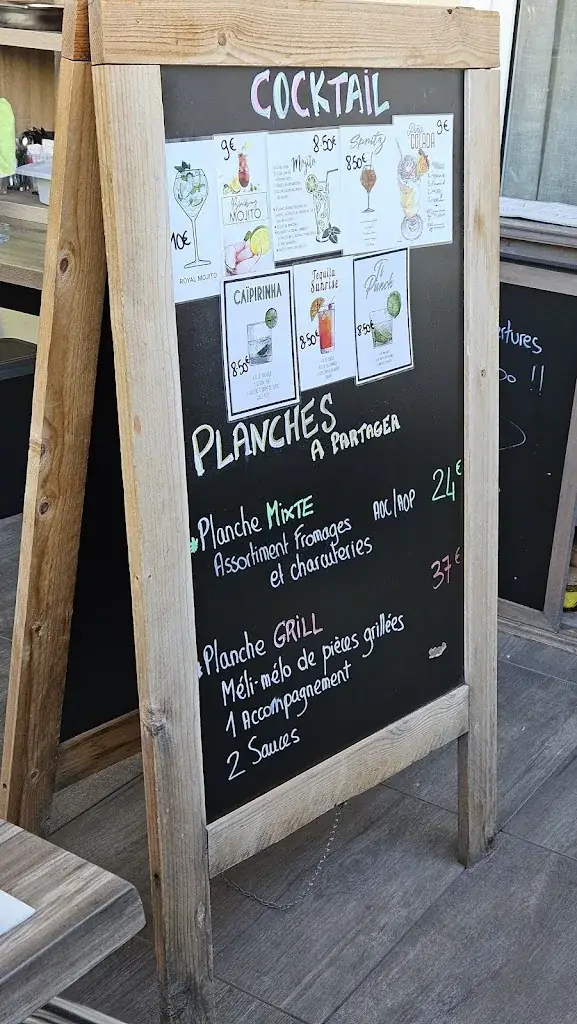 COCKTAIL
10€
ROYAL MOJITO
9€
MOJITO
Mojito
8.50€
Spritz
8.50€
COLADA
9€
CAÏPIRINHA
8.50€
Tequila
Sunrise
8.50€
Ti
Punch
8.50€
PLANCHES
A PARTAGER
Planche MIXTE AOC/AOP 24€
Assortiment Fromages
et charcuteries
Planche GRILL 37€
Méli-mélo de pièces grillées
1 Accompagnement
2 Sauces
!!